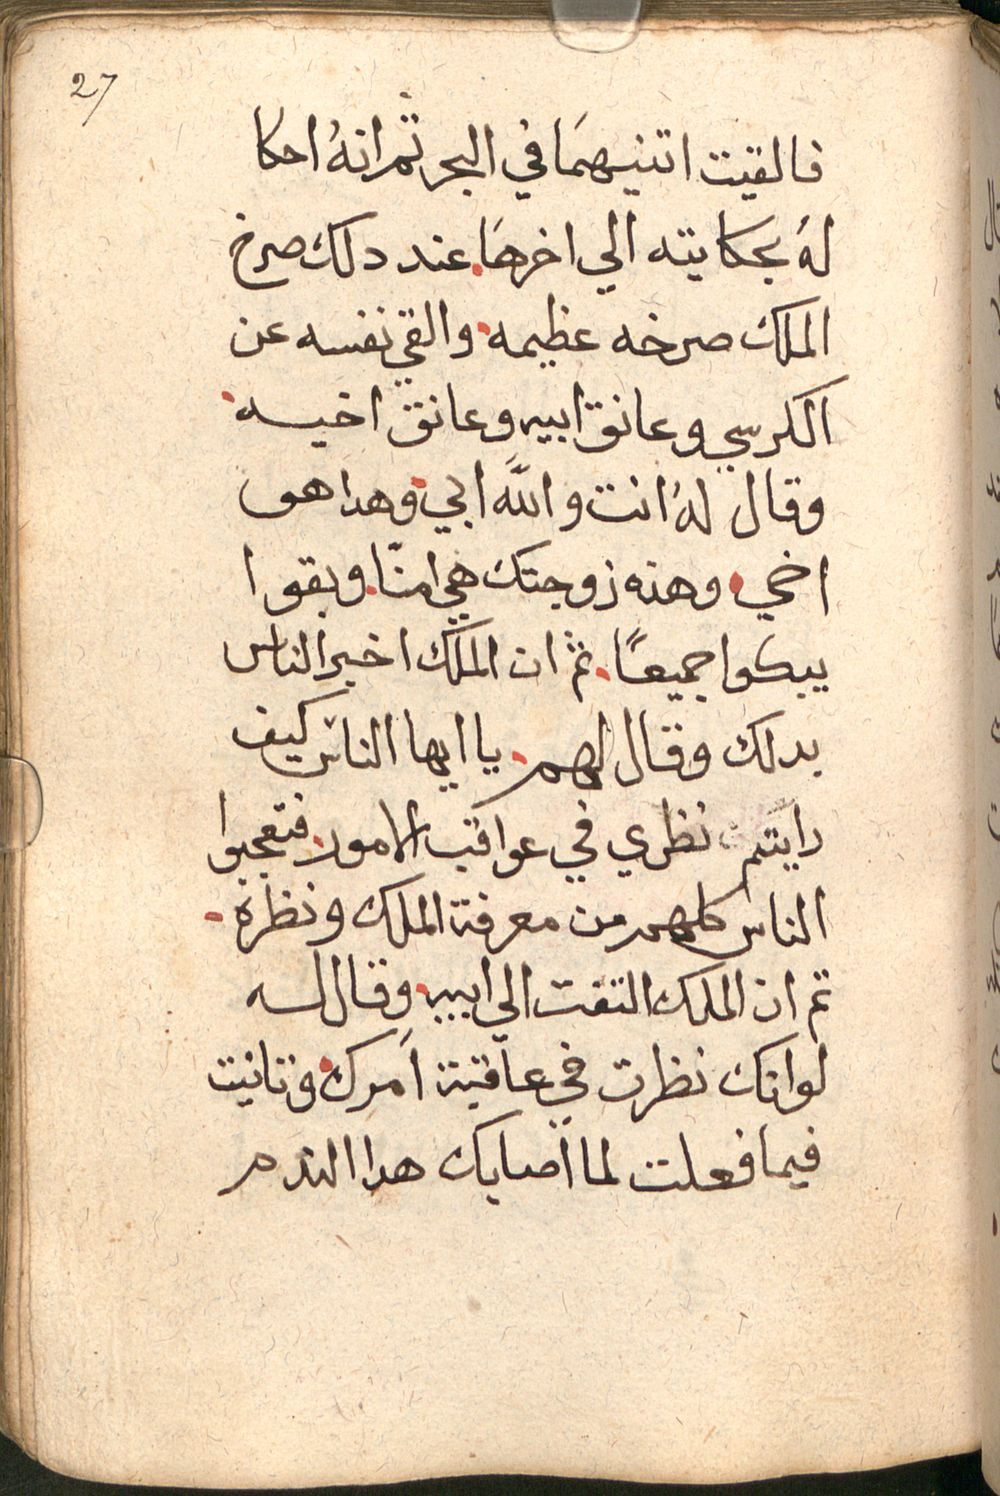 27
فالقيت اتنيهمَا في البحر ثم انهُ احكا
لهُ بحكايته الي اخرهَا. عند دلك صرخ
الملك صرخه عظيمه. والقي نفسه عن
الكرسي وعانق ابيه وعانق اخيه.
وقال لهُ انت واللَّه ابي. وهدا هو
اخي. وهذه زوجتك هي امنّا. وبقوا
يبكوا جميعًا. ثم ان الملك اخبر الناس
بدلك وقال لهم. يا ايها الناس كيف
رايتم نظري في عواقب الامور. فتعجبوا
الناس كلهم من معرفة الملك ونظره.
تم ان الملك التفت الي ابيه. وقال له
لوانك نظرت في عاقبة امرك. وتانيت
فيما فعلت لما اصابك هدا الندم